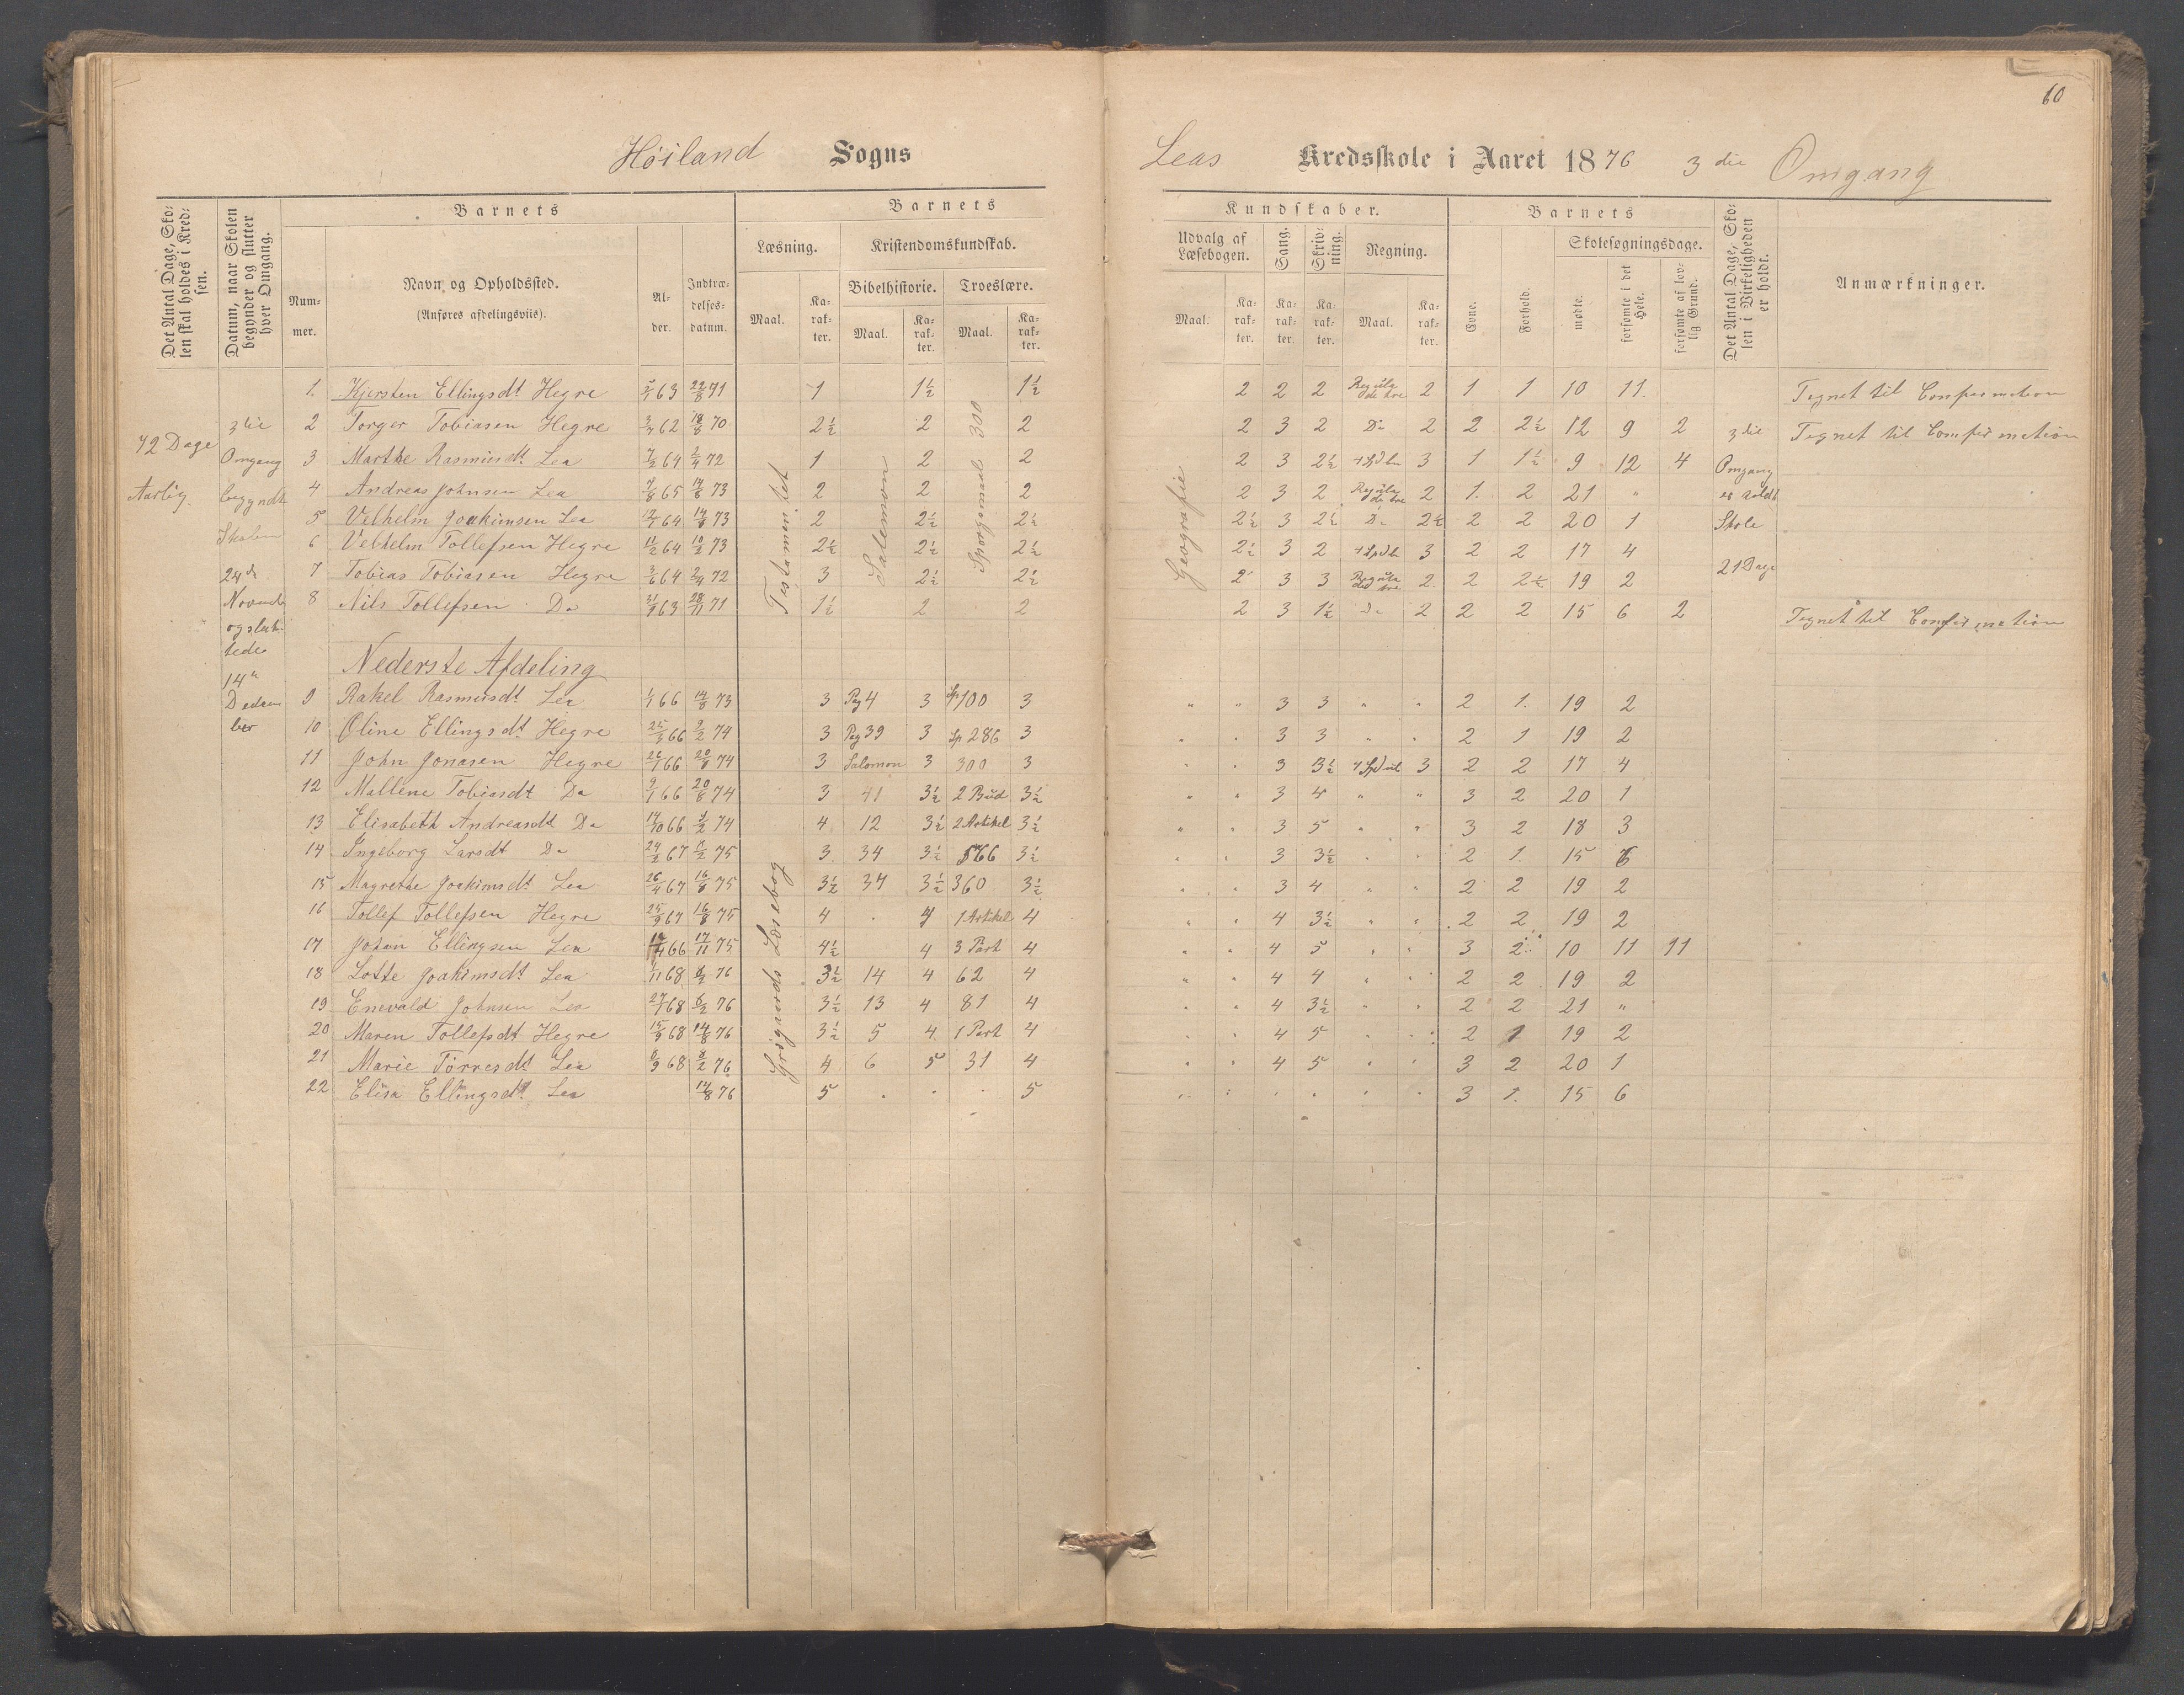 60
Höiland Sogns
Leas Kredsskole i Aaret 1876 3die Omgang
Det Antal Dage, Skolen skal holdes i Kredsen.
Datum, naar Skolen begynder og slutter hver Omgang.
Barnets
Nummer.
Navn og Opholdssted.
(Anføres afdelingsviis).
Alder.
Indtrædelsesdatum.
Barnets
Læsning.
Kristendomskundskab.
Bibelhistorie. Troeslære.
Maal. Karakter. Maal. Karakter. Maal. Karakter.
Kundskaber.
Udvalg af Læsebogen.
Sang.
Skrivning.
Regning.
Maal. Karakter. Karakter. Karakter. Maal. Karakter.
Barnets
Evne.
Forhold.
Skolesøgningsdage.
mødte.
forsømte i det Hele.
forsømte af lovlig Grund.
Det Antal Dage, Skolen i Virkeligheden er holdt.
Anmærkninger.
72 Dage
Aarlig.
3die
Omgang
begyndte
Skolen
24de
Novemb
og slut-
tede
14de
Decem
ber
Testamentet
Salemon
Sporgsmeel 300
Geografie
1. Kjersten Ellingsdt Hegre 63 22/8 71 1 1½ 1½ 2 2 2 Regula de tre 2 1 1 10 11 Tegnet til Confirmation
2 Torger Tobiasen Hegre 62 70 2½ 2 2 2 3 2 Do 2 2 2½ 12 9 2 Tegnet til Confirmation
3 Marthe Rasmusdt Lea 64 72 1 2 2 2 3 2½ 3 1 1½ 9 12 4
4 Andreas Johnsen Lea 65 73 2 2 2 2 3 2 Regula de tre 2 1. 2 21 "
5 Velhelm Joakimsen Lea 64 73 2 2½ 2½ 2½ 3 2½ Do 2½ 2 2 20 1
6 Velhelm Tollefsen Hegre 11/2 64 10/2 73 2½ 2½ 2½ 2½ 3 2 3 2 2 17 4
7 Tobias Tobiasen Hegre 3/6 64 2/4 72 3 2½ 2½ 2 3 3 Regula de tre 2. 2 2½ 19 2
8 Nils Tollefsen Do 63 28/11 71 1½ 2 2 2 3 1½ Do 2 2 2 15 6 2 Tegnet til Confirmation
3die
Omgang
er holdt
Skole
21 Dage
Nederste Afdeling
Grögaards Læsebog
9 Rakel Rasmusdt Lea 66 14/8 73 3 Pag 4 3 Sp 100 3 " " 3 3 " " 2 1. 19 2
10 Oline Ellingsdt Hegre 66 2/2 74 3 Pag 39 3 Sp 286 3 " " 3 3 " " 2 1 19 2
11 John Jonasen Hegre 66 20/8 74 3 Salomon 3 300 3 " " 3 3½ 3 2 2 17 4
12 Mallene Tobiasdt Do 9/1 66 20/8 74 3 41 3½ 2 Bud 3½ " " 3 4 " " 3 2 20 1
13 Elisabeth Andreasdt Do 66 74 4 12 3½ 2 Artikel 3½ " " 3 5 " " 3 2 18 3
14 Ingeborg Larsdt Do 67 75 3. 34 3½ 566 3½ " " 3 3½ " " 2 1. 15 6
15 Magrethe Joakimsdt Lea 26/4 67 16/8 75 3½ 37 3½ 360 3½ " " 3 4 " " 2 2 19 2
16 Tollef Tollefsen Hegre 25/9 67 16/8 75 4 . 4 1 Artikel 4 " " 4 3½ " " 2 2 19 2
17 Johan Ellingsen Lea 66 17/11 75 4½ 4 3 Part 4 " " 4 5 " " 3 2 10 11 11
18 Lotte Joakimsdt Lea 68 76 3½ 14 4 62 4 " " 4 4 " " 2 2 19 2
19 Enevald Johnsen Lea 68 76 3½ 13 4 81 4 " " 4 3½ " " 2 2 21 "
20 Maren Tollefsdt Hegre 15/9 68 14/8 76 3½ 5 4 1 Part 4 " " 4 5 " " 2 1 19 2
21 Marie Törresdt Lea 68 76 4 6 5 31 4 " " 4 5 " " 3 2 20 1
22 Elisa Ellingsdt Lea 14/8 76 5 . . . 5 " " " " " " 3 1. 15 6